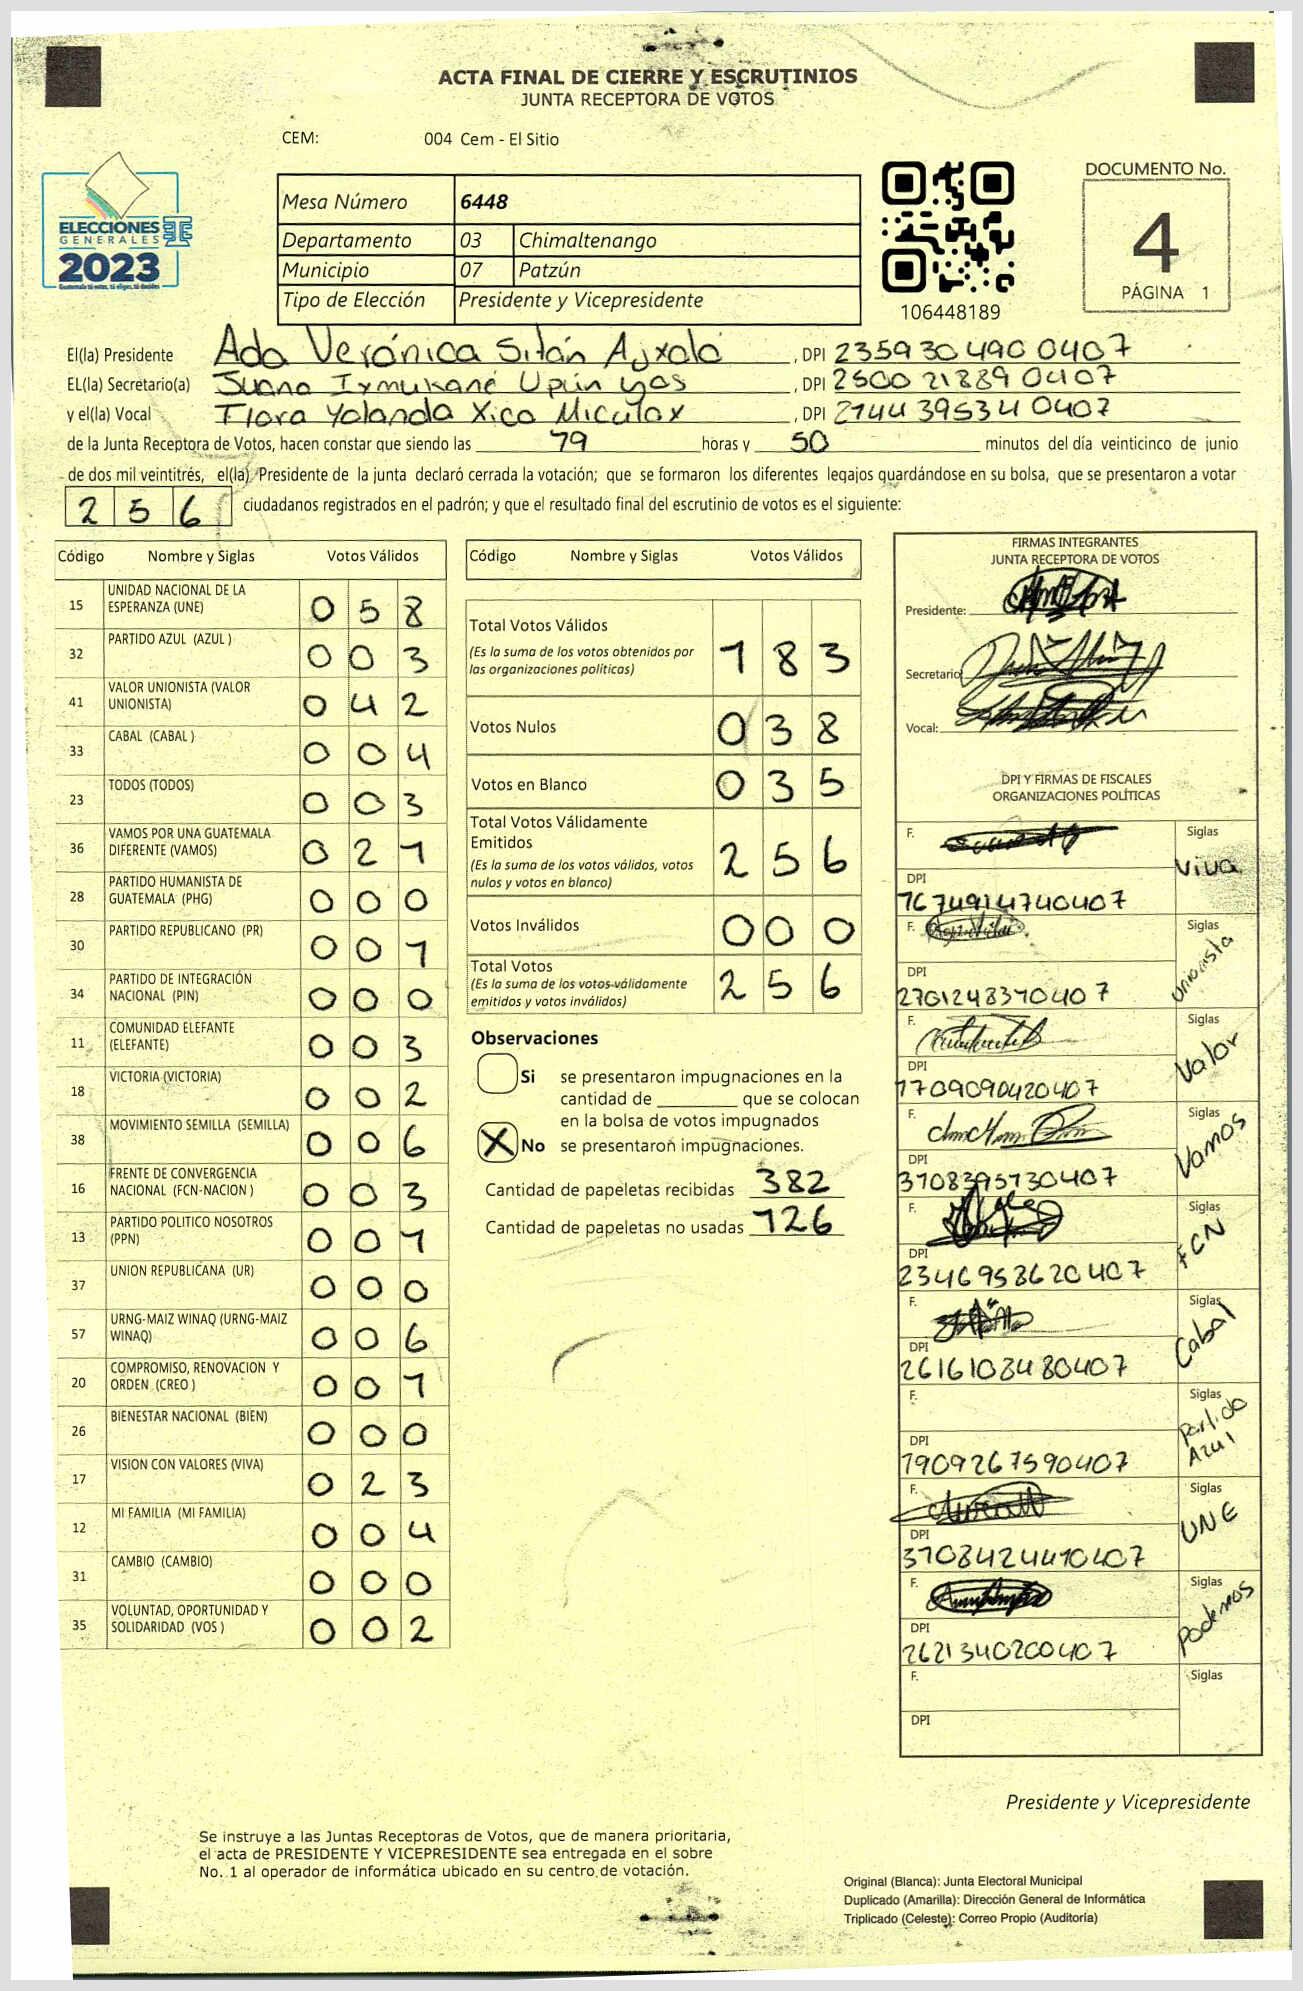 ACTA FINAL DE CIERRE Y ESCRUTINIOS
JUNTA RECEPTORA DE VOTOS
CEM: 004 Cem - El Sitio
ELECCIONES
GENERALES
2023
Guatemala tú votas, tú eliges, tú decides
Mesa Número 6448
Departamento 03 Chimaltenango
Municipio 07 Patzún
Tipo de Elección Presidente y Vicepresidente
106448189
DOCUMENTO No.
4
PÁGINA 1
El(la) Presidente Ada Verónica Sitán Ajxoló, DPI 2359 30490 0407
EL(la) Secretario(a) Juana Ixmukané Upún Yos, DPI 2500 21889 0407
y el(la) Vocal Flora Yolanda Xico Miculax, DPI 2144 39534 0407
de la Junta Receptora de Votos, hacen constar que siendo las 19 horas y 50 minutos del día veinticinco de junio
de dos mil veintitrés, el(la) Presidente de la junta declaró cerrada la votación; que se formaron los diferentes legajos guardándose en su bolsa, que se presentaron a votar
256 ciudadanos registrados en el padrón; y que el resultado final del escrutinio de votos es el siguiente:
Código Nombre y Siglas Votos Válidos
15 UNIDAD NACIONAL DE LA ESPERANZA (UNE) 058
32 PARTIDO AZUL (AZUL ) 003
41 VALOR UNIONISTA (VALOR UNIONISTA) 042
33 CABAL (CABAL ) 004
23 TODOS (TODOS) 003
36 VAMOS POR UNA GUATEMALA DIFERENTE (VAMOS) 021
28 PARTIDO HUMANISTA DE GUATEMALA (PHG) 000
30 PARTIDO REPUBLICANO (PR) 001
34 PARTIDO DE INTEGRACIÓN NACIONAL (PIN) 000
11 COMUNIDAD ELEFANTE (ELEFANTE) 003
18 VICTORIA (VICTORIA) 002
38 MOVIMIENTO SEMILLA (SEMILLA) 006
16 FRENTE DE CONVERGENCIA NACIONAL (FCN-NACION ) 003
13 PARTIDO POLITICO NOSOTROS (PPN) 001
37 UNION REPUBLICANA (UR) 000
57 URNG-MAIZ WINAQ (URNG-MAIZ WINAQ) 006
20 COMPROMISO, RENOVACION Y ORDEN (CREO ) 001
26 BIENESTAR NACIONAL (BIEN) 000
17 VISION CON VALORES (VIVA) 023
12 MI FAMILIA (MI FAMILIA) 004
31 CAMBIO (CAMBIO) 000
35 VOLUNTAD, OPORTUNIDAD Y SOLIDARIDAD (VOS ) 002
Código Nombre y Siglas Votos Válidos
Total Votos Válidos 183
(Es la suma de los votos obtenidos por
las organizaciones políticas)
Votos Nulos 038
Votos en Blanco 035
Total Votos Válidamente
Emitidos 256
(Es la suma de los votos válidos, votos
nulos y votos en blanco)
Votos Inválidos 000
Total Votos 256
(Es la suma de los votos válidamente
emitidos y votos inválidos)
Observaciones
Si se presentaron impugnaciones en la
cantidad de ________ que se colocan
en la bolsa de votos impugnados
X No se presentaron impugnaciones.
Cantidad de papeletas recibidas 382
Cantidad de papeletas no usadas 126
FIRMAS INTEGRANTES
JUNTA RECEPTORA DE VOTOS
Presidente:
Secretario:
Vocal:
DPI Y FIRMAS DE FISCALES
ORGANIZACIONES POLÍTICAS
F. Siglas Viva
DPI 1674914740407
F. Siglas Unionista
DPI 2701248370407
F. Siglas Valor
DPI 1709090420407
F. Siglas Vamos
DPI 3708395730407
F. Siglas FCN
DPI 2346958620407
F. Siglas Cabal
DPI 2616108480407
F. Siglas Partido Azul
DPI 1909267590407
F. Siglas UNE
DPI 3708424470407
F. Siglas Podemos
DPI 2621340200407
F. Siglas
DPI
Presidente y Vicepresidente
Se instruye a las Juntas Receptoras de Votos, que de manera prioritaria,
el acta de PRESIDENTE Y VICEPRESIDENTE sea entregada en el sobre
No. 1 al operador de informática ubicado en su centro de votación.
Original (Blanca): Junta Electoral Municipal
Duplicado (Amarilla): Dirección General de Informática
Triplicado (Celeste): Correo Propio (Auditoría)